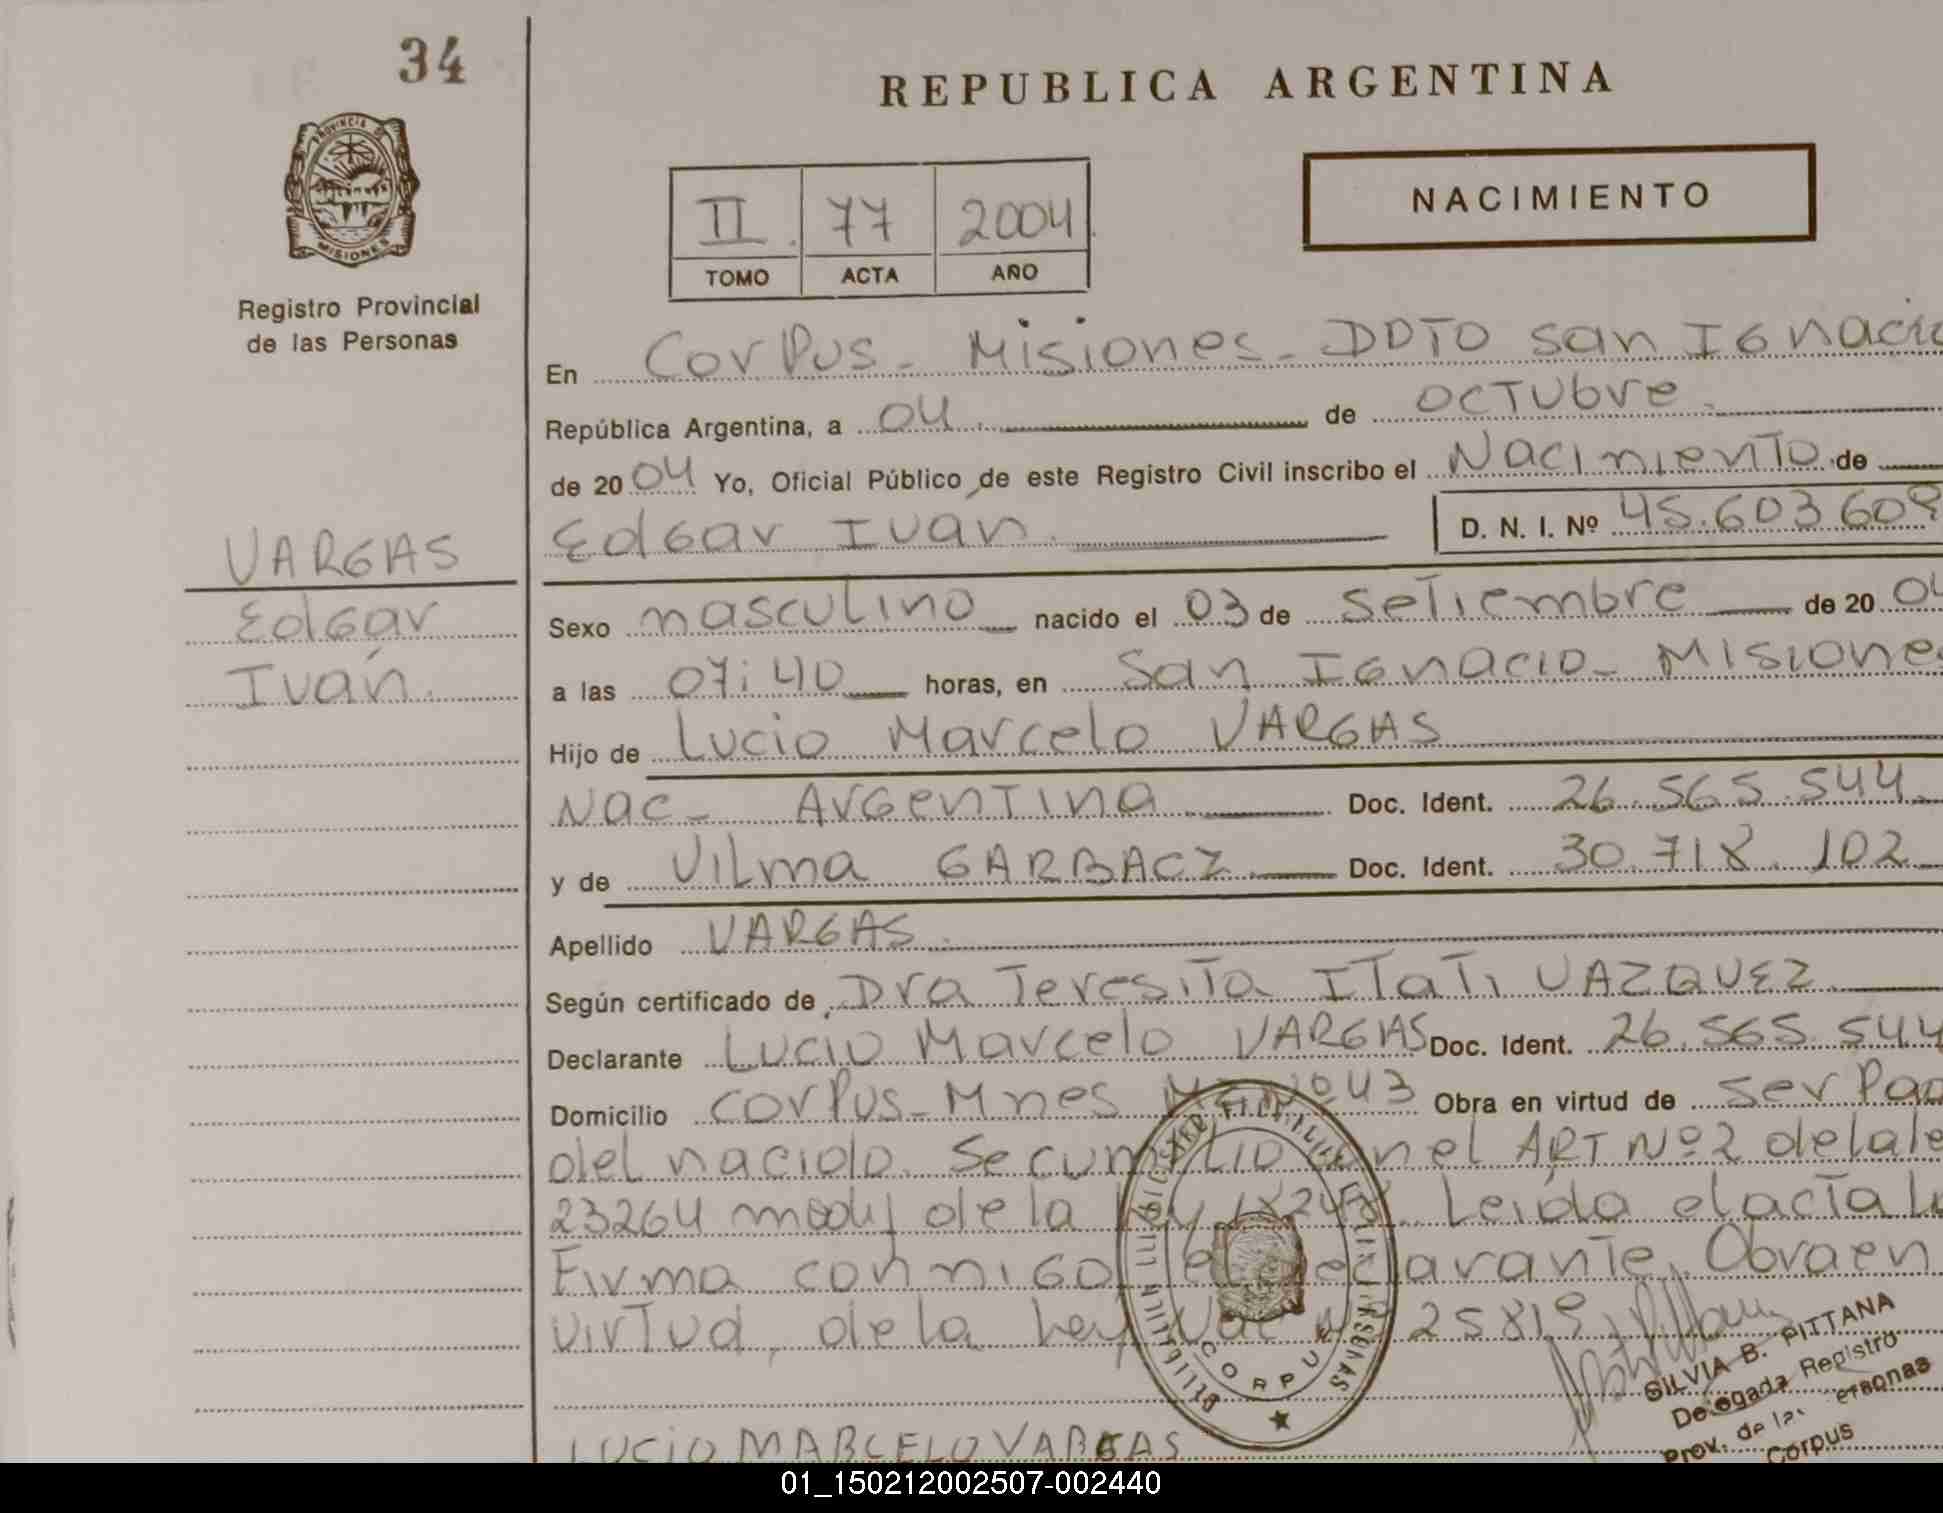 34
REPUBLICA ARGENTINA
PROVINCIA DE
MISIONES
NACIMIENTO
II 77 2004
TOMO ACTA AÑO
Registro Provincial
de las Personas
En Corpus - Misiones - DPTO San Ignacio
República Argentina, a 04 de octubre
de 2004 Yo, Oficial Público de este Registro Civil inscribo el Nacimiento de
Edgar Ivan D. N. I. Nº 45.603.609
VARGAS
Edgar
Iván
Sexo masculino nacido el 03 de Setiembre de 20 04
a las 07:40 horas, en San Ignacio - Misiones
Hijo de Lucio Marcelo VARGAS
Nac - Argentina Doc. Ident. 26.565.544
y de Vilma GARBACZ Doc. Ident. 30.718.102
Apellido VARGAS
Según certificado de Dra Teresita Itati VAZQUEZ
Declarante Lucio Marcelo VARGAS Doc. Ident. 26.565.544
Domicilio Corpus - Mnes Nº 43 Obra en virtud de ser Pad
del nacido. Se cumplio con el ART Nº 2 de la le
23264 modif de la ley 18248. Leida el acta la
Firma conmigo el declarante. Obra en
virtud, de la Ley Nac Nº 25819
CORPUS
SILVIA B. PITTANA
Delegada Registro
Prov. de las Personas
Corpus
LUCIO MARCELO VARGAS
01_150212002507-002440